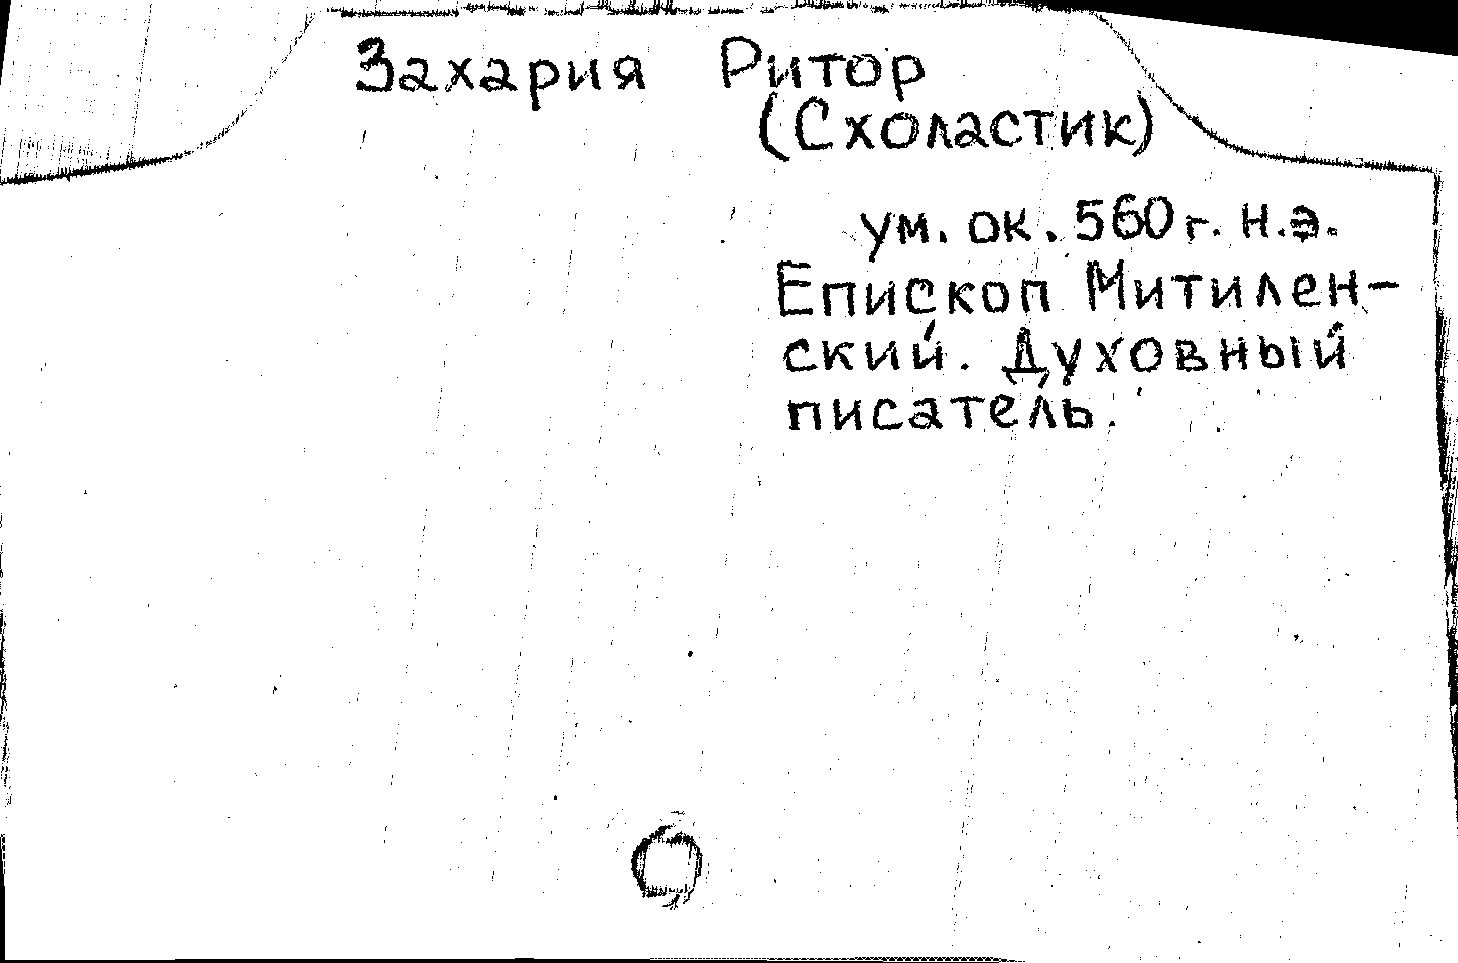 Захария Ритор
(Схоластик)
ум. ок. 560 г. н.э.
Епископ Митилен-
ский. Духовный
писатель.